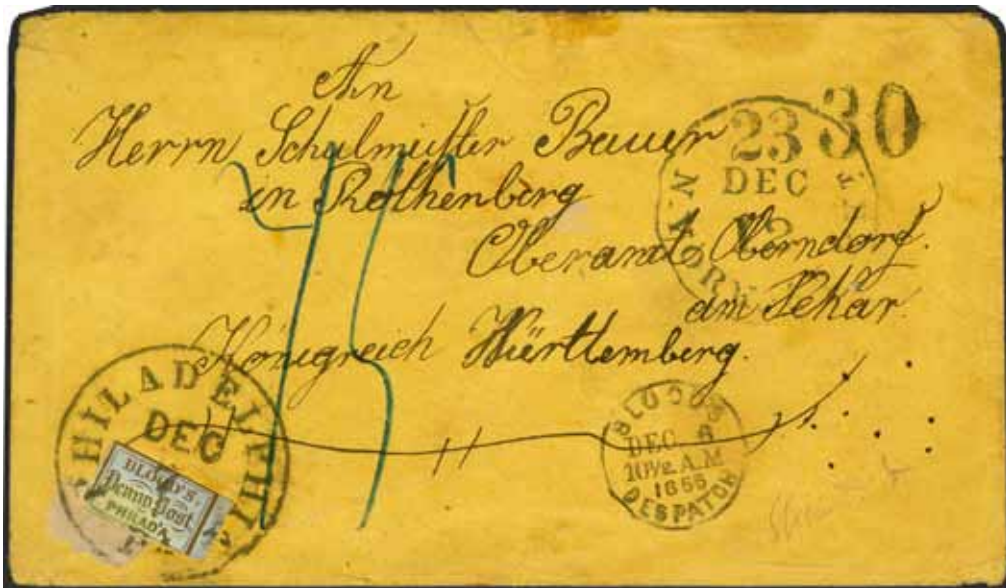 An
Herrn Schulmeister Bauer
in Rothenberg
Oberamt Oberndorf.
am Nekar.
Königreich Württemberg.
30
23
DEC
N. YORK
PHILADELPHIA
DEC
BLOOD'S
Penny Post
PHILAD'A
BLOOD'S
DEC
10½ A.M
1855
DESPATCH